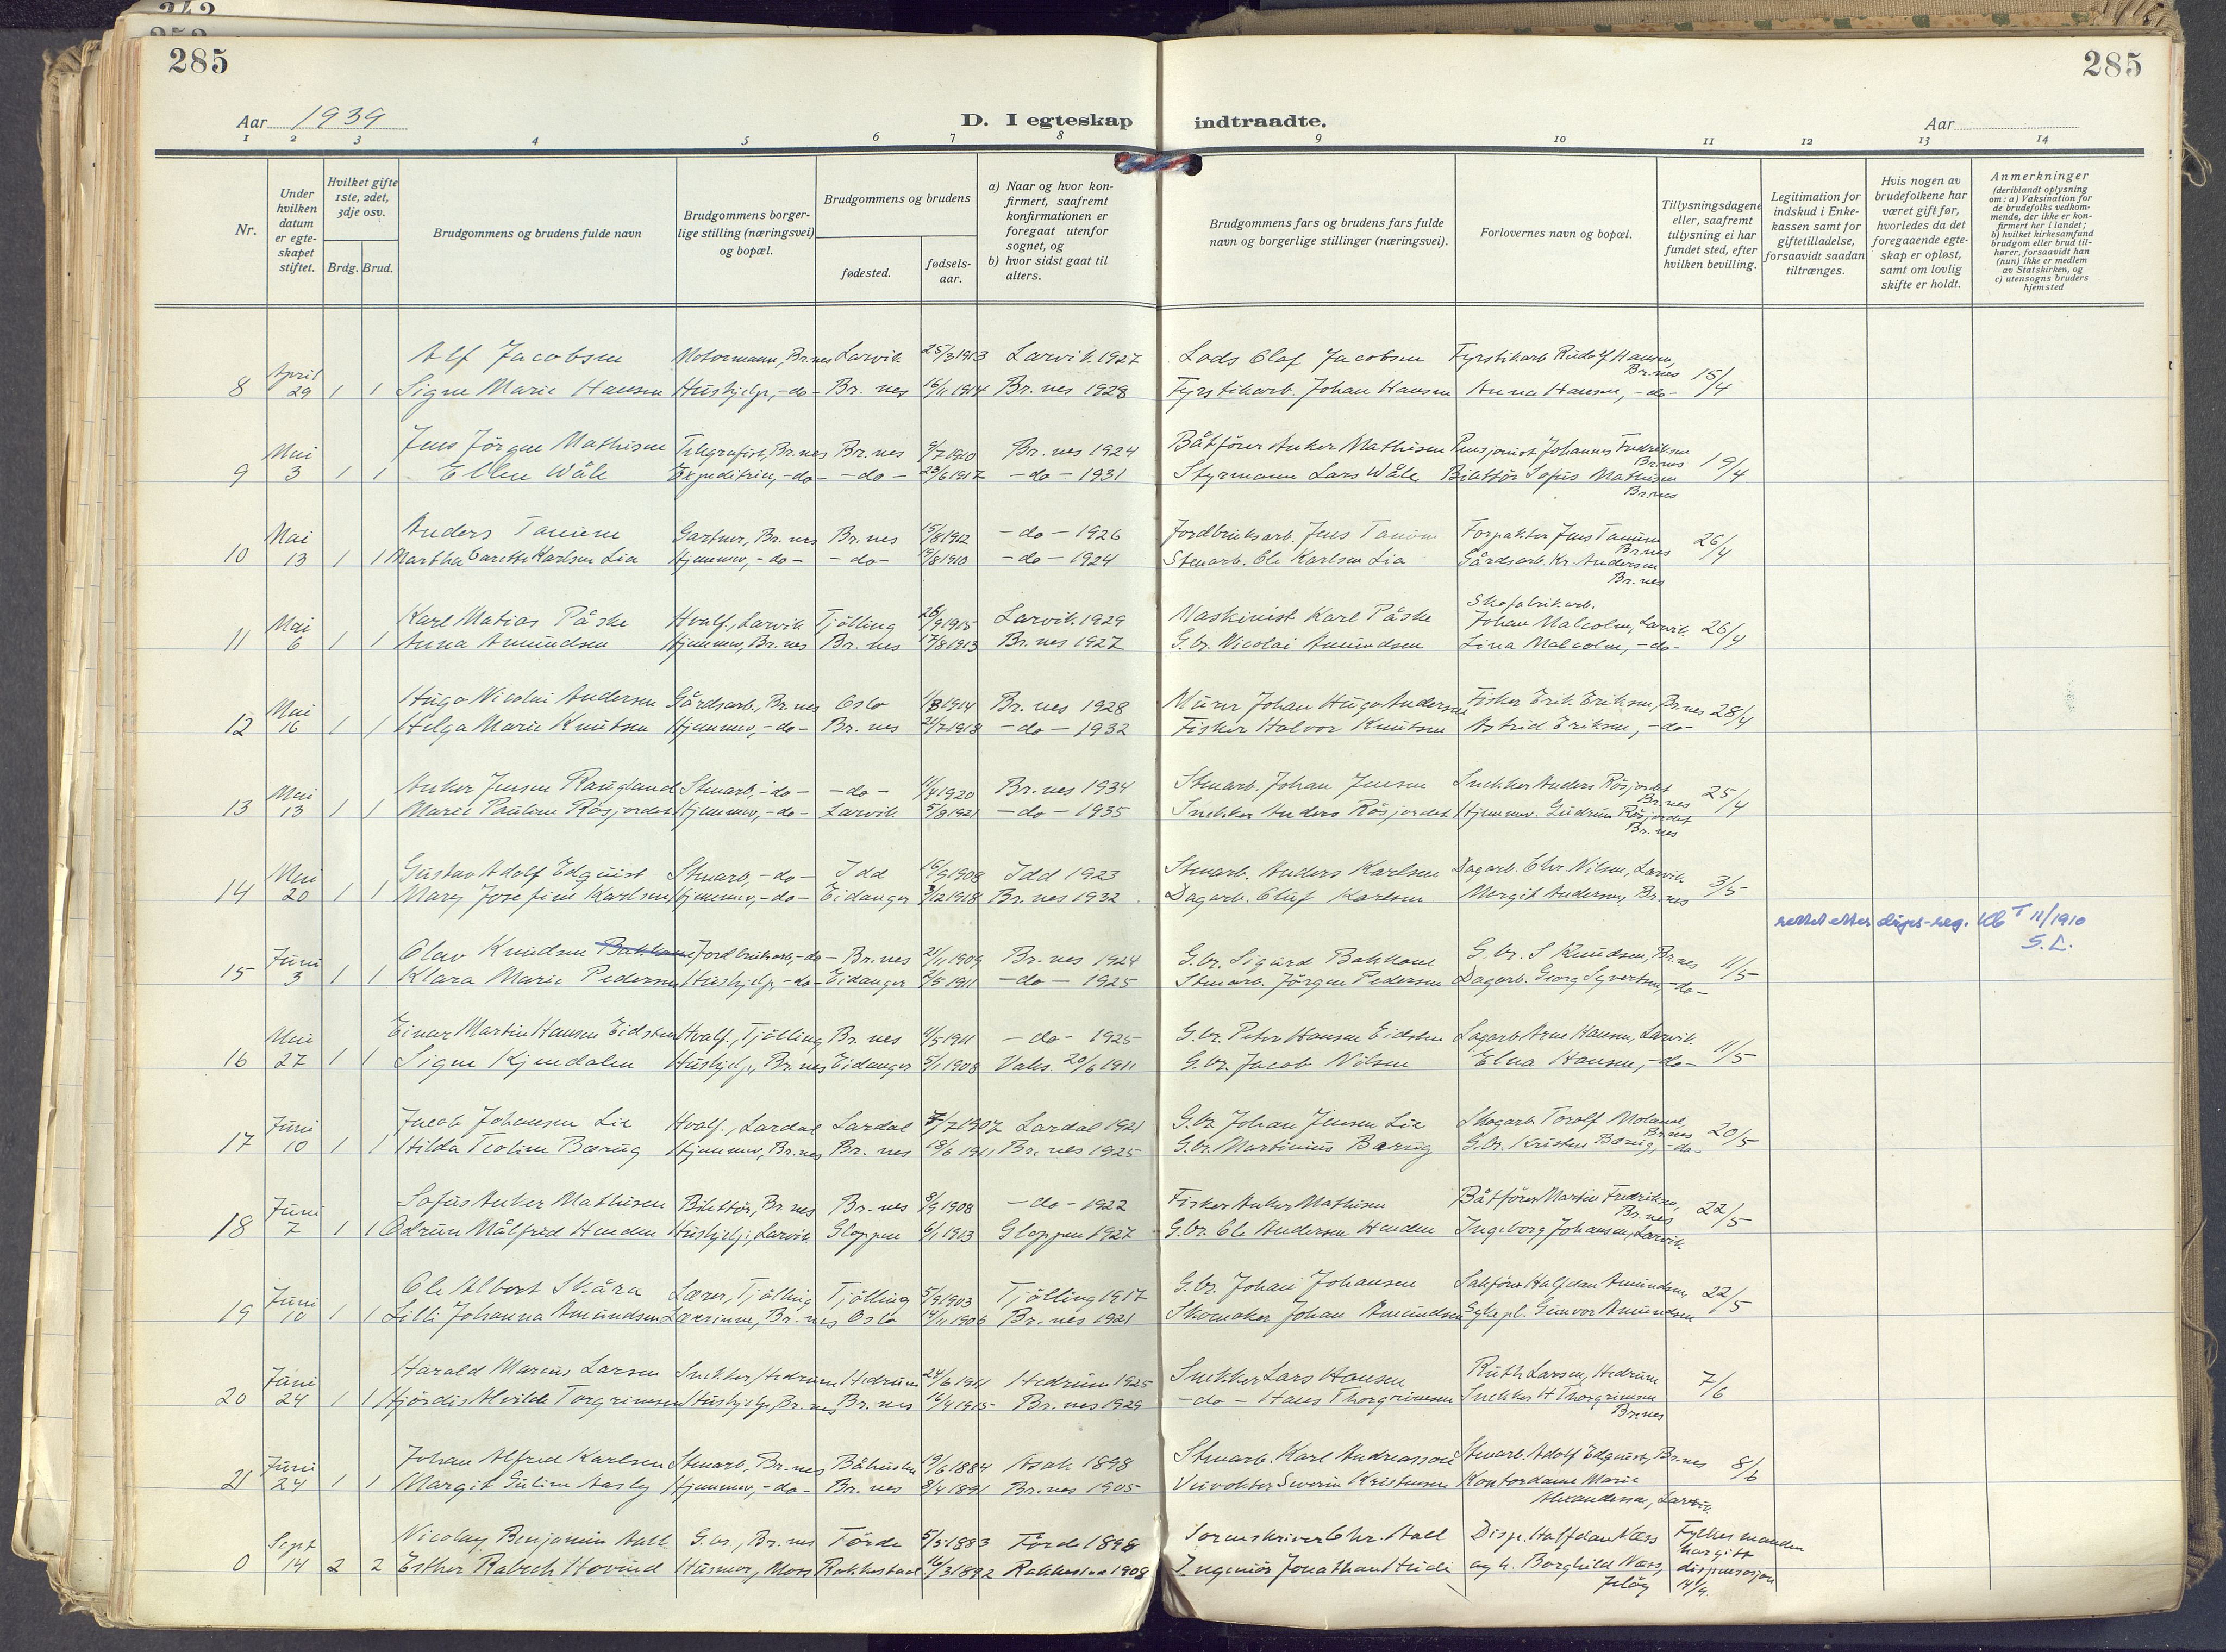 285
285
Aar 1939
D. I egteskap indtraadte.
Aar
1 2 3 4 5 6 7 8 9 10 11 12 13 14
Nr.
Under hvilken datum er egte-skapet stiftet.
Hvilket gifte 1ste, 2det, 3dje osv.
Brdg. Brud.
Brudgommens og brudens fulde navn
Brudgommens borger-lige stilling (næringsvei) og bopæl.
Brudgommens og brudens
fødested.
fødsels-aar.
a) Naar og hvor kon-firmert, saafremt konfirmationen er foregaat utenfor sognet, og
b) hvor sidst gaat til alters.
Brudgommens fars og brudens fars fulde navn og borgerlige stillinger (næringsvei).
Forlovernes navn og bopæl.
Tillysningsdagene eller, saafremt tillysning ei har fundet sted, efter hvilken bevilling.
Legitimation for indskud i Enke-kassen samt for giftetilladelse, forsaavidt saadan tiltrænges.
Hvis nogen av brudefolkene har været gift før, hvorledes da det foregaaende egte-skap er opløst, samt om lovlig skifte er holdt.
Anmerkninger (deriblandt oplysning om: a) Vaksination for de brudefolks vedkom-mende, der ikke er kon-firmert her i landet; b) hvilket kirkesamfund brudgom eller brud til-hører, forsaavidt han (hun) ikke er medlem av Statskirken, og c) utensogns bruders hjemsted
Alf Jacobsen Motormann, Br.nes Larvik 25/3 1913 Larvik 1927 Lods Olaf Jacobsen Fyrstikarb. Rudolf Hansen, Br.nes
8 April 29 1 1 Signe Marie Hansen Hushjelp, -do- Br. nes 16/11 1914 Br. nes 1928 Fyrstikarb. Johan Hansen Anna Hansen, -do- 15/4
Jens Jörgen Mathisen Telegrafist, Br.nes Br. nes 9/7 1910 Br. nes 1924 Båtförer Anker Mathisen Pensjonist Johannes Fredriksen Br.nes
9 Mai 3 1 1 Ellen Wåle Expeditrise, -do- -do- 23/6 1917 -do- 1931 Styrmann Lars Wåle Bilettör Sofus Mathisen Br.nes 19/4
Anders Tanum Gartner, Br. nes Br. nes 15/8 1912 -do- 1926 Jordbruksarb. Jens Tanum Forpakter Jens Tanum Br.nes
10 Mai 13 1 1 Martha Garette Karlsen Lia Hjemmev, -do- -do- 19/8 1910 -do- 1924 Stenarb. Ole Karlsen Lia Gårdsarb. Kr. Andersen Br. nes 26/4
Karl Matias Påske Hvalf., Larvik Tjölling 26/9 1915 Larvik 1929 Maskinist Karl Påske Skofabrikarb. Johan Malcolm, Larvik
11 Mai 6 1 1 Anna Amundsen Hjemmev, Br. nes Br. nes 17/8 1913 Br. nes 1927 G.br. Nicolai Amundsen Lina Malcolm, -do- 26/4
Hugo Nicolai Andersen Gårdsarb., Br. nes Oslo 1/8 1914 Br. nes 1928 Murer Johan Hugo Andersen Fisker Erik Eriksen, Br.nes
12 Mai 16 1 1 Helga Marie Knutsen Hjemmev, -do- Br. nes 21/7 1918 -do- 1932 Fisker Halvor Knutsen Astrid Eriksen, -do- 28/4
Anker Jensen Raugland Stenarb, -do- -do- 11/4 1920 Br. nes 1934 Stenarb. Johan Jensen Snekker Anders Rösjordet Br.nes
13 Mai 13 1 1 Marie Pauline Rösjordet Hjemmev, -do- Larvik 5/8 1921 -do- 1935 Snekker Anders Rösjordet Hjemmev. Gudrun Rösjordet Br. nes 25/4
Gustav Adolf Edquist Stenarb, -do- Idd 16/9 1908 Idd 1923 Stenarb. Anders Karlsen Dagarb. Chr. Nilsen, Larvik
14 Mai 20 1 1 Mary Josefine Karlsen Hjemmev, -do- Eidanger 3/12 1918 Br. nes 1932 Dagarb. Oluf Karlsen Margit Andersen, Br. nes 3/5
rettet etter dåps-reg. Kb T 11/1910
S. L.
Olav Knudsen Bakkane Jordbruksarb, -do- Br. nes 21/11 1909 Br. nes 1924 G.br. Sigurd Bakkane G. br. S Knudsen, Br.nes
15 Juni 3 1 1 Klara Marie Pedersen Hushjelp, -do- Eidanger 2/5 1911 -do- 1925 Stenarb. Jörgen Pedersen Dagarb. Georg Syvertsen, -do- 11/5
Einar Martin Hansen Eidsten Hvalf., Tjölling Br. nes 4/5 1911 -do- 1925 G.br. Peter Hansen Eidsten Lagarb. Arne Hansen, Larvik
16 Mai 27 1 1 Signe Kjendalen Hushjelp, Br.nes Eidanger 5/1 1908 Vaks. 20/6 1911 G.br. Jacob Nilsen Elna Hansen, -do- 11/5
Jacob Johansen Lie Hvalf., Lardal Lardal 7/7 1907 Lardal 1921 G.br. Johan Jensen Lie Skogarb. Toralf Moland, Br.nes
17 Juni 10 1 1 Hilda Teoline Bærug Hjemmev, Br.nes Br. nes 18/6 1911 Br. nes 1925 G.br. Martinius Bærug G.br. Kristen Bærug, -do- 20/5
Sofus Anker Mathisen Bilettör, Br. nes Br. nes 8/9 1908 -do- 1922 Fisker Anker Mathisen Båtförer Martin Fredriksen, Br. nes
18 Juni 7 1 1 Odrun Målfrid Henden Hushjelp, Larvik Gloppen 6/1 1913 Gloppen 1927 G.br. Ole Andersen Henden Ingeborg Johansen, Larvik 22/5
Ole Albert Skåra Lærer, Tjölling Tjölling 5/9 1903 Tjölling 1917 G.br. Johan Johansen Sakförer Halfdan Amundsen,
19 Juni 10 1 1 Lilli Johanna Amundsen Lærerinne, Br. nes Oslo 14/11 1906 Br. nes 1921 Skomaker Johan Amundsen Sykepl. Gunvor Amundsen 22/5
Harald Marcus Larsen Snekker, Hedrum Hedrum 24/6 1911 Hedrum 1925 Snekker Lars Hansen Ruth Larsen, Hedrum
20 Juni 24 1 1 Hjördis Alvilde Torgrimsen Hushjelp, Br. nes Br. nes 16/4 1915 Br. nes 1929 -do- Hans Thorgrimsen Snekker H Thorgrimsen Br.nes 7/6
Johan Alfred Karlsen Stenarb, Br. nes Båhuslen 19/6 1884 Asak 1898 Stenarb. Karl Andreassen Stenarb. Adolf Edquist, Br.nes
21 Juni 24 1 1 Margit Guline Aasly Hjemmev, -do- Br. nes 8/4 1891 Br. nes 1905 Veivokter Severin Kristensen Kontordame Marie Alexandersen, Larvik 8/6
Nicolay Benjamin Aall G.br., Br. nes Förde 5/5 1883 Förde 1898 Sorenskriver Chr. Aall Disp. Halfdan Næss Fylkesmanden har gitt
0 Sept 14 2 2 Esther Hovind Husmor, Moss Rakkestad 16/3 1892 Rakkestad 1908 Ingeniör Jonathan og h. Borghild Næss, Jelöy dispensasjon 14/9.